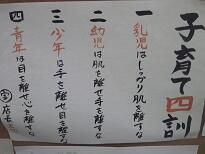 子育て四訓
一 乳児はしっかり肌を離すな
二 幼児は肌を離せ手を離すな
三 少年は手を離せ目を離すな
四 青年は目を離せ心を離すな
店主